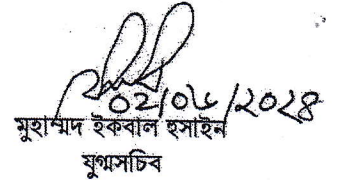 ০২/০৬/২০২৪
মুহাম্মদ ইকবাল হুসাইন
যুগ্মসচিব